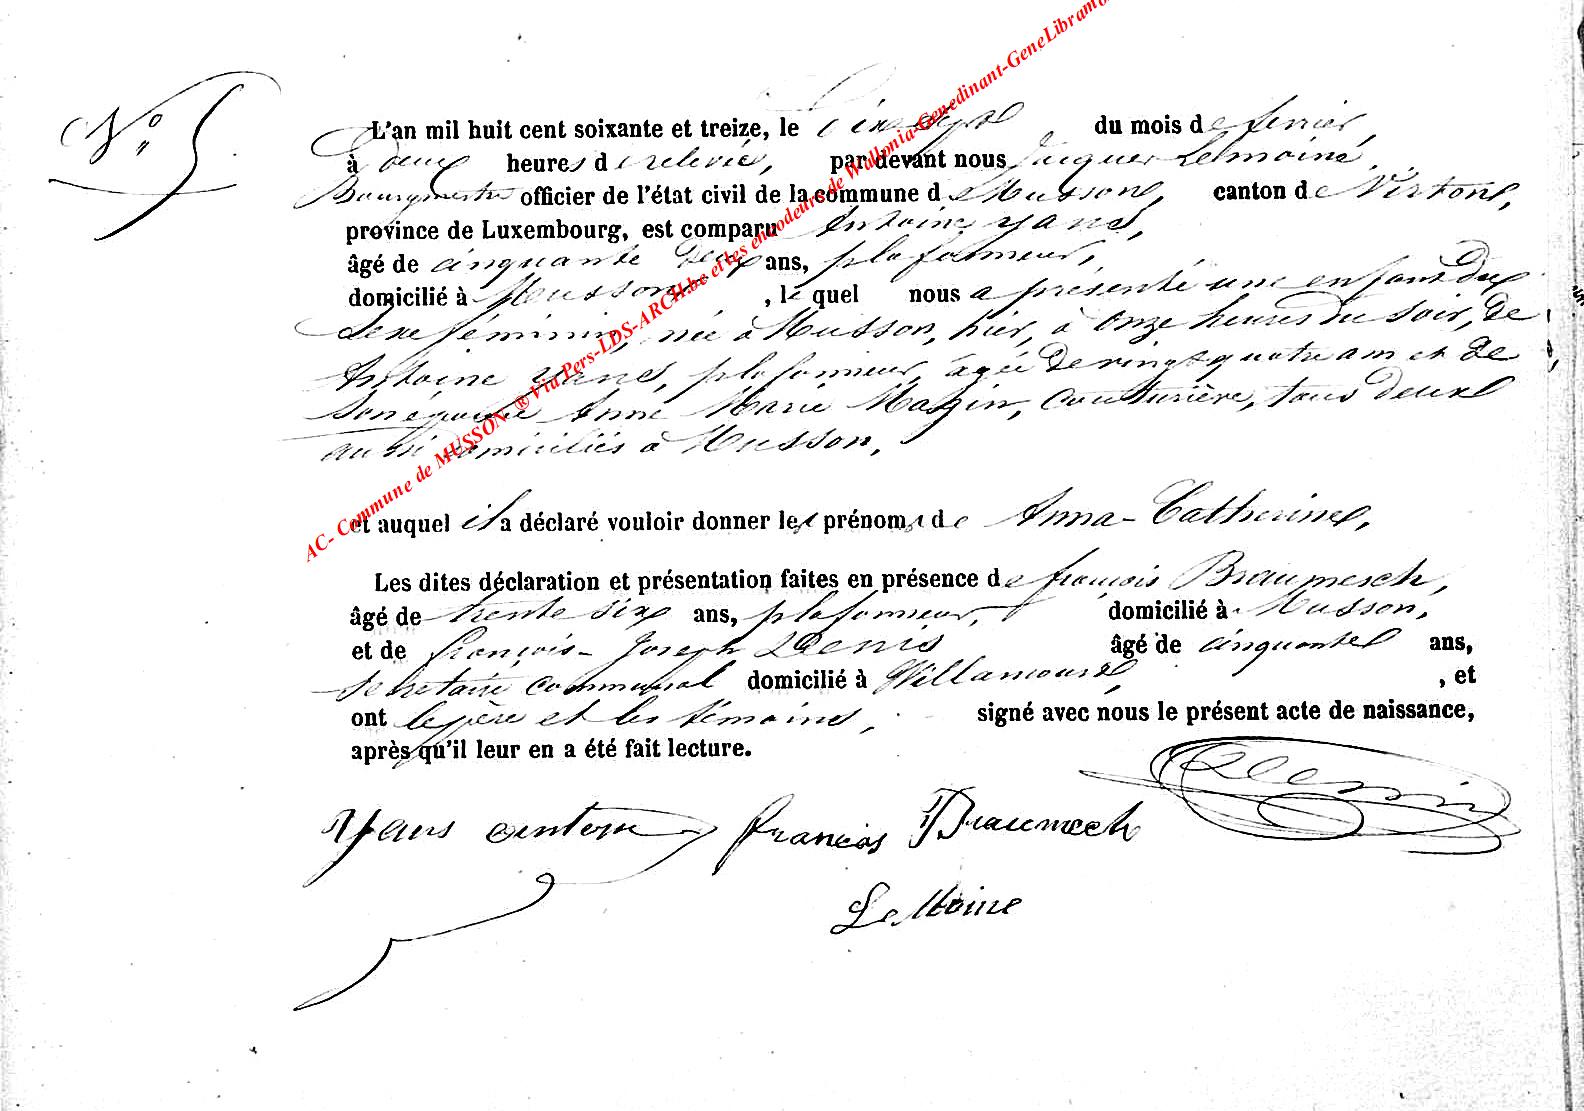 N° 5
L'an mil huit cent soixante et treize, le du mois de fevrier,
à deux heures de relevée, par devant nous Jacques Lemoine,
Bourgmestre officier de l'état civil de la commune de Musson, canton de Virton,
province de Luxembourg, est comparu Antoine Yans,
âgé de cinquante deux ans, plafonneur,
domicilié à Musson, le quel nous a présenté une enfant du
sexe féminin, née à Musson, hier, à onze heures du soir, de
Antoine Yans, plafonneur, agée de vingt quatre ans et de
son épouse Anne Marie Magin, couturière, tous deux
aussi domiciliés à Musson,
et auquel il a déclaré vouloir donner les prénoms de Anna-Catherine,
Les dites déclaration et présentation faites en présence de françois Braumesch,
âgé de trente six ans, plafonneur, domicilié à Musson,
et de françois-Joseph Denis âgé de cinquante ans,
secretaire communal domicilié à Willancourt, , et
ont le père et les témoins, signé avec nous le présent acte de naissance,
après qu'il leur en a été fait lecture.
Denis
Yans antoin francois Braumech
LeMoine
AC- Commune de MUSSON ® Via Pers-LDS-ARCH.be et les encodeurs de Wallonia-Genedinant-GeneLibramo